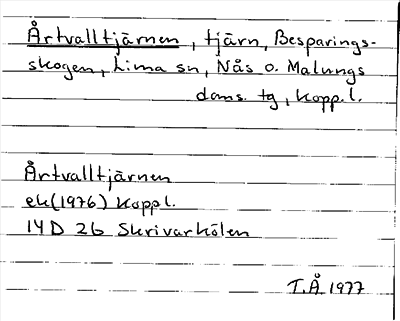 Årtvalltjärnen, tjärn, Besparings-
skogen, Lima sn, Nås o. Malungs
doms. tg, Kopp.l.
Årtvalltjärnen
ek(1976) Koppl.
14D 2b Skrivarhölen
T.Å 1977